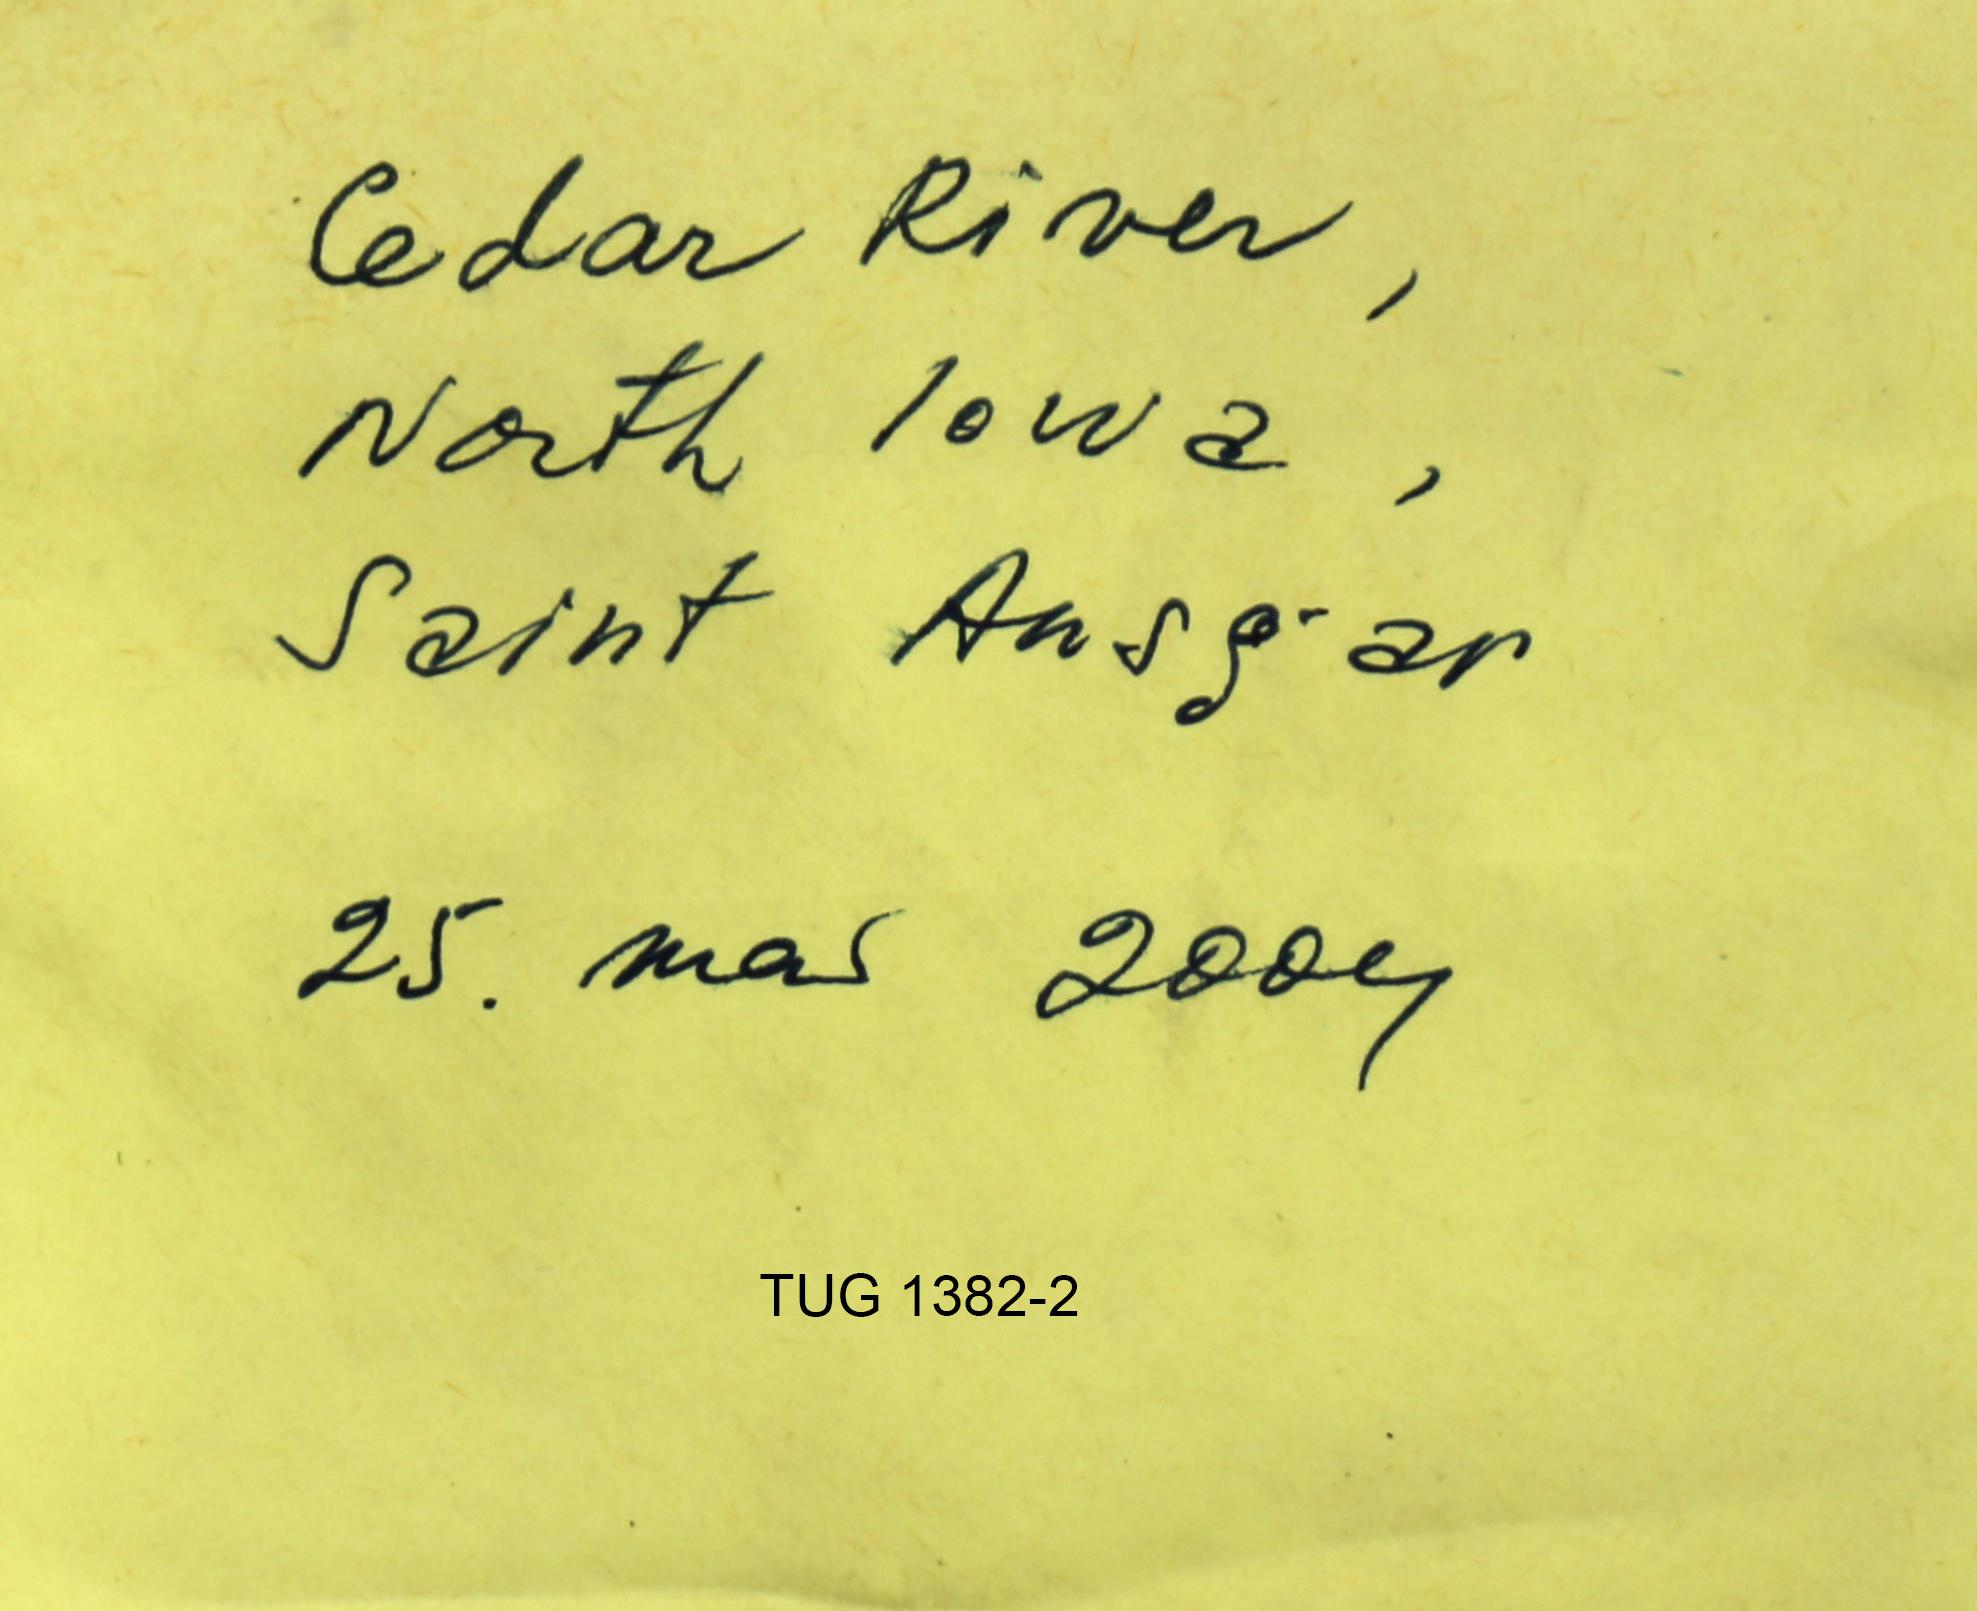 Cedar River,
North Iowa,
Saint Ansgar
25. mar 2004
TUG 1382-2